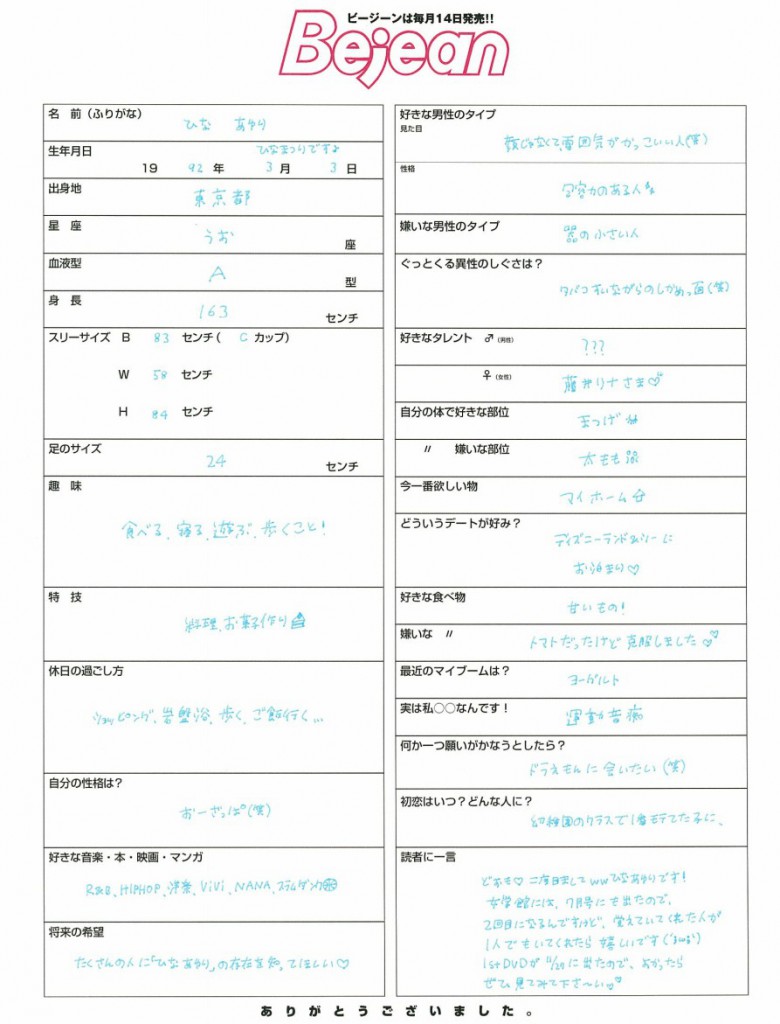 ビージーンは毎月14日発売!!
Bejean
名　前（ふりがな）
ひな　あゆり
生年月日
ひなまつりですよ
19 92 年 3 月 3 日
出身地
東京都
星　座
うお 座
血液型
A 型
身　長
163 センチ
スリーサイズ B 83 センチ ( C カップ)
W 58 センチ
H 84 センチ
足のサイズ
24 センチ
趣　味
食べる、寝る、遊ぶ、歩くこと!
特　技
料理、お菓子作り
休日の過ごし方
ショッピング、岩盤浴、歩く、ご飯行く...
自分の性格は？
おーざっぱ(笑)
好きな音楽・本・映画・マンガ
R&B、HIPHOP、洋楽、ViVi、NANA、スラムダンク
将来の希望
たくさんの人に「ひなあゆり」の存在を知ってほしい♡
好きな男性のタイプ
見た目
顔じゃなくて、雰囲気がかっこいい人(笑)
性格
包容力のある人
嫌いな男性のタイプ
器の小さい人
ぐっとくる異性のしぐさは？
タバコすいながらのしかめっ面(笑)
好きなタレント ♂（男性）
???
♀（女性）
藤井リナさま♡
自分の体で好きな部位
まつげ
〃　嫌いな部位
太もも
今一番欲しい物
マイホーム
どういうデートが好み？
ディズニーランド&シーに
お泊まり♡
好きな食べ物
甘いもの!
嫌いな　〃
トマトだったけど克服しました
最近のマイブームは？
ヨーグルト
実は私○○なんです！
運動音痴
何か一つ願いがかなうとしたら？
ドラえもんに会いたい(笑)
初恋はいつ？どんな人に？
幼稚園のクラスで1番モテてた子に、
読者に一言
どぉも♡二度目ましてwwひなあゆりです!
女学館には、7月号にも出たので、
2回目になるんですけど、覚えていてくれた人が
1人でもいてくれたら嬉しいです
1stDVDが 11/20に出たので、よかったら
ぜひ見てみて下さ〜い
ありがとうございました。